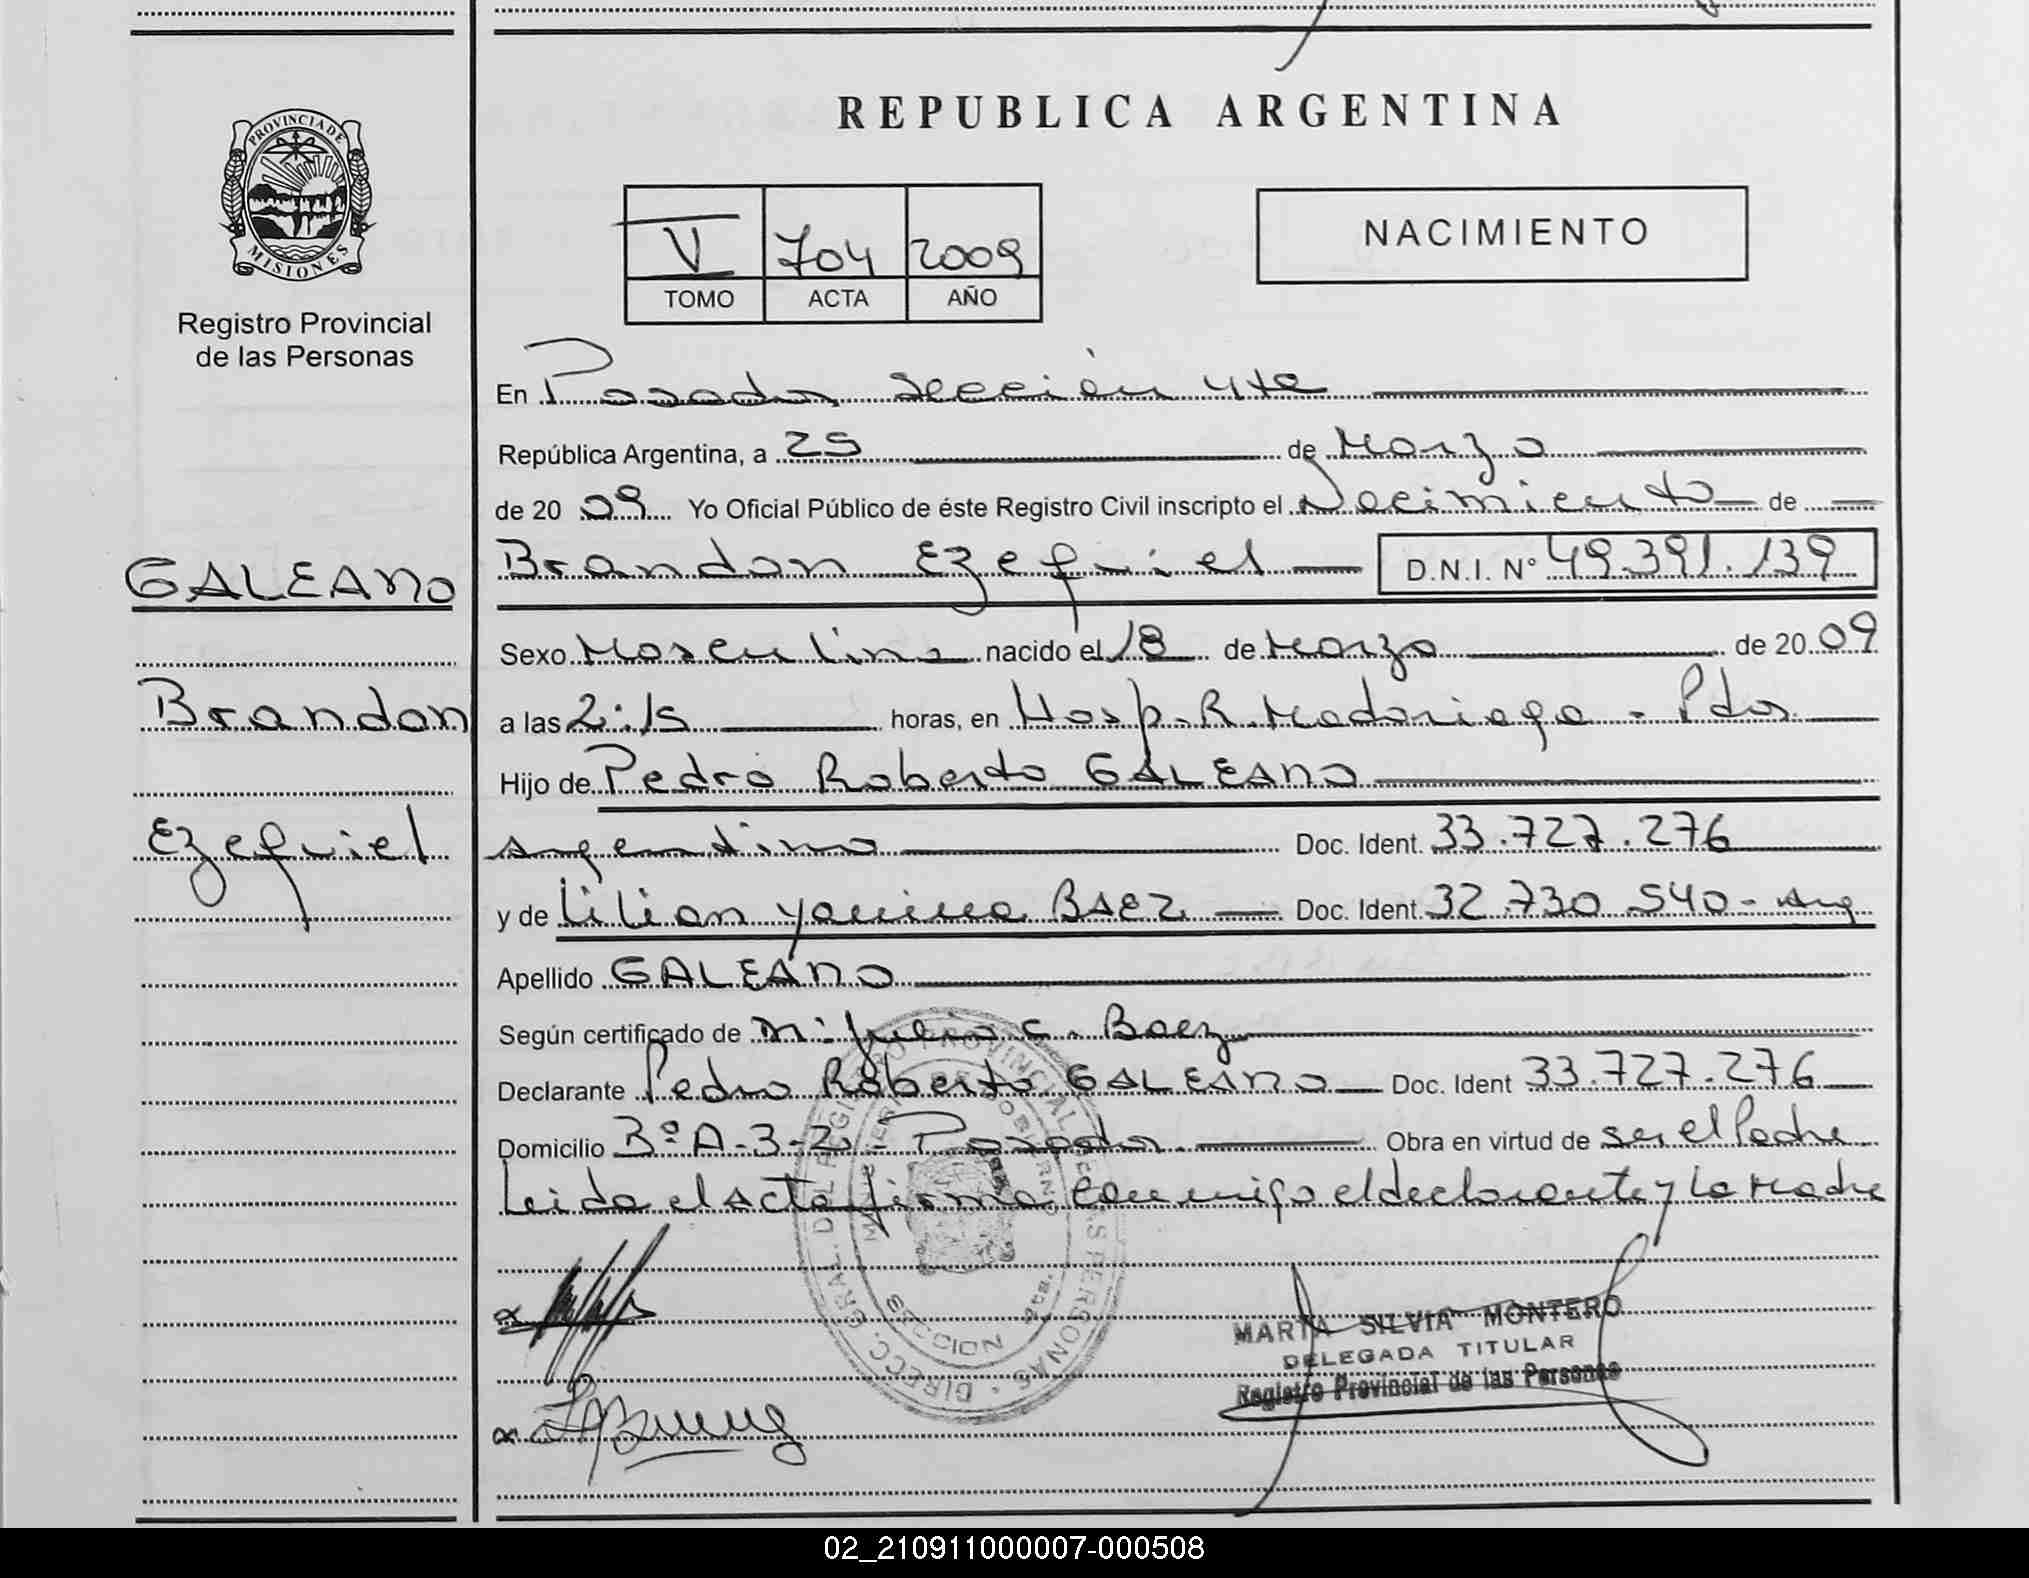 REPUBLICA ARGENTINA
PROVINCIA DE
MISIONES
Registro Provincial
de las Personas
V 704 2009
TOMO ACTA AÑO
NACIMIENTO
En Posadas sección 4ta
República Argentina, a 25 de Marzo
de 20 09 Yo Oficial Público de éste Registro Civil inscripto el Nacimiento de
GALEANO
Brandon Ezequiel D.N.I. N° 49.391.139
Sexo Masculino nacido el 18 de Marzo de 20 09
Brandon
a las 2:15 horas, en Hosp. R. Madariaga - Pdas.
Hijo de Pedro Roberto GALEANO
Ezequiel
argentino Doc. Ident. 33.727.276
y de Lilian Yanina BAEZ Doc. Ident. 32.730.540 - Arg
Apellido GALEANO
Según certificado de C. Baez
Declarante Pedro Roberto GALEANO Doc. Ident 33.727.276
Domicilio A-3-2 - Posadas. Obra en virtud de ser el Padre.
Leida el acta firma conmigo el declarante y la Madre
DIRECC. GRAL. DEL REGISTRO PROVINCIAL DE LAS PERSONAS
MINISTERIO DE GOBIERNO
SECCION 4ta.
MARTA SILVIA MONTERO
DELEGADA TITULAR
Registro Provincial de las Personas
02_210911000007-000508